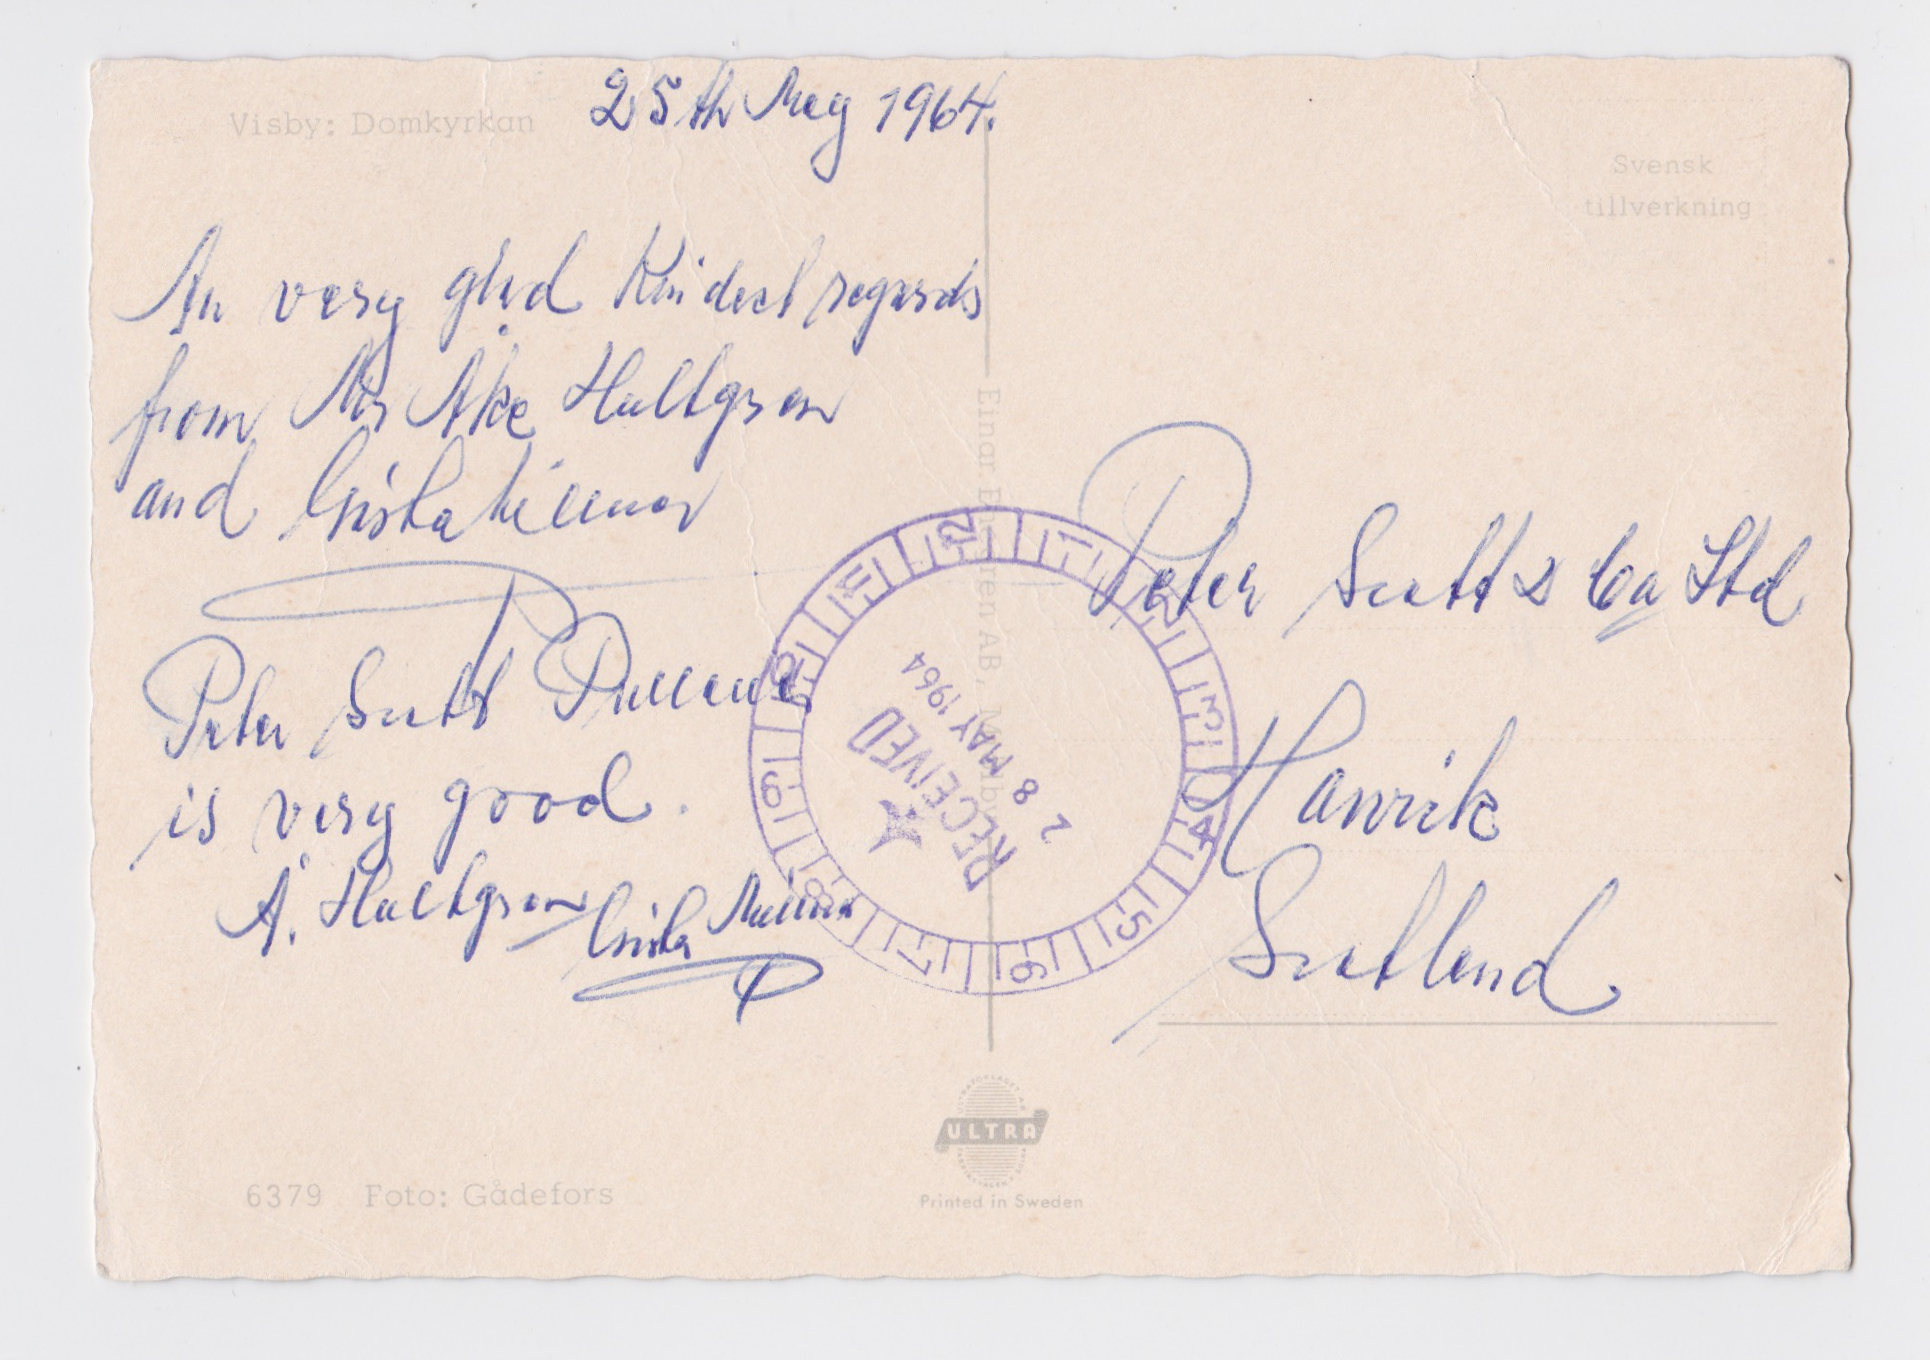 Visby: Domkyrkan
25th May 1964.
Svensk
tillverkning
An very glad Kindest regards
from Mr Åke Hultgren
and Gösta
Peter Scott Pullover
is very good.
Å. Hultgren Gösta
Peter Scott & Co Ltd
Hawik
Scotland
RECEIVED
28 MAY 1964
1 2 3 4 5 6 7 8 9 10 11 12
Einar AB,
ULTRA
Printed in Sweden
6379 Foto: Gådefors